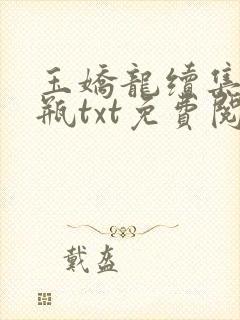 玉嬌龍續集
瓶txt免費閱
戴盔